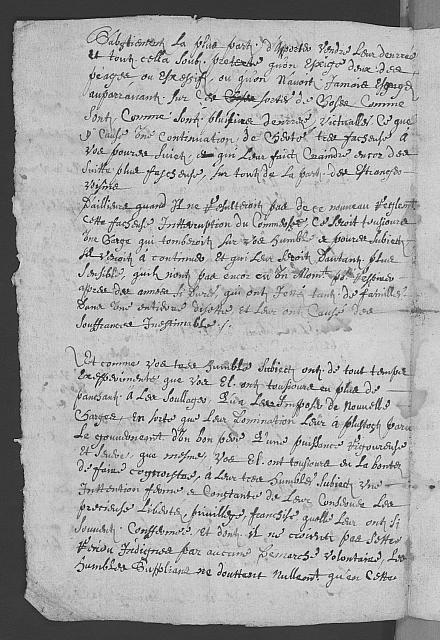 s'abstiennent La plus part d'aporter vendre Leur denrees
et tout cella sous pretexte qu'on Exige d'eux des
peages ou Excessif, ou qu'on n'avoit Jamais Exigé
auparavant sur ces sortes de choses Comme
sont Comme sont plusieurs denrees, victualles Ce que
y Cause Une continuation de Cherté tres facheuse à
vos pouvres sujets et qui Leur fait Craindre encor des
suitte plus facheuse, sur tout de La part des Etranger
voisins
D'ailleurs quand Il ne resulteroit pas de ce nouveau
Cette facheuse Interruption du Commerce, Ce seroit tousjours
Une Charge qui tomberoit sur vos humbles et pouvres subjects
à continuer et qui Leur seroit d'autant plus
sensible, qu'ils n'ont pas encor eu un Moment
apres des annees si dures, qui ont Jetté tant de familles
Dans Une entiere disette et Leur ont Cause des
souffrances Inestimable ./.
Et comme vos tres humbles subjects ont de tout temps
experimenté que vos El. ont tousjours eu plus de
panchant à Les soulager Qu'à Les Imposer de Nouvelle
Charges, En sorte que Leur Domination Leur à plustost paru
Le gouvernement d'un bon pere Qu'une puissance rigoureuse
et severe, que mesme, vos El. ont tousjours eu La bonté
de faire cognoistre, à Leur tres humbles subjects Une
Intention ferme et Constante de Leur Conserver Les
precieuse Libertés, privilleges, franchise qu'elle Leur ont si
souvent Confirmé, et dont il ne croient pas s'estre
rendu Indignes par aucune demarche volontaire, Les
humbles suppliants ne doubtent nullement qu'en Cette